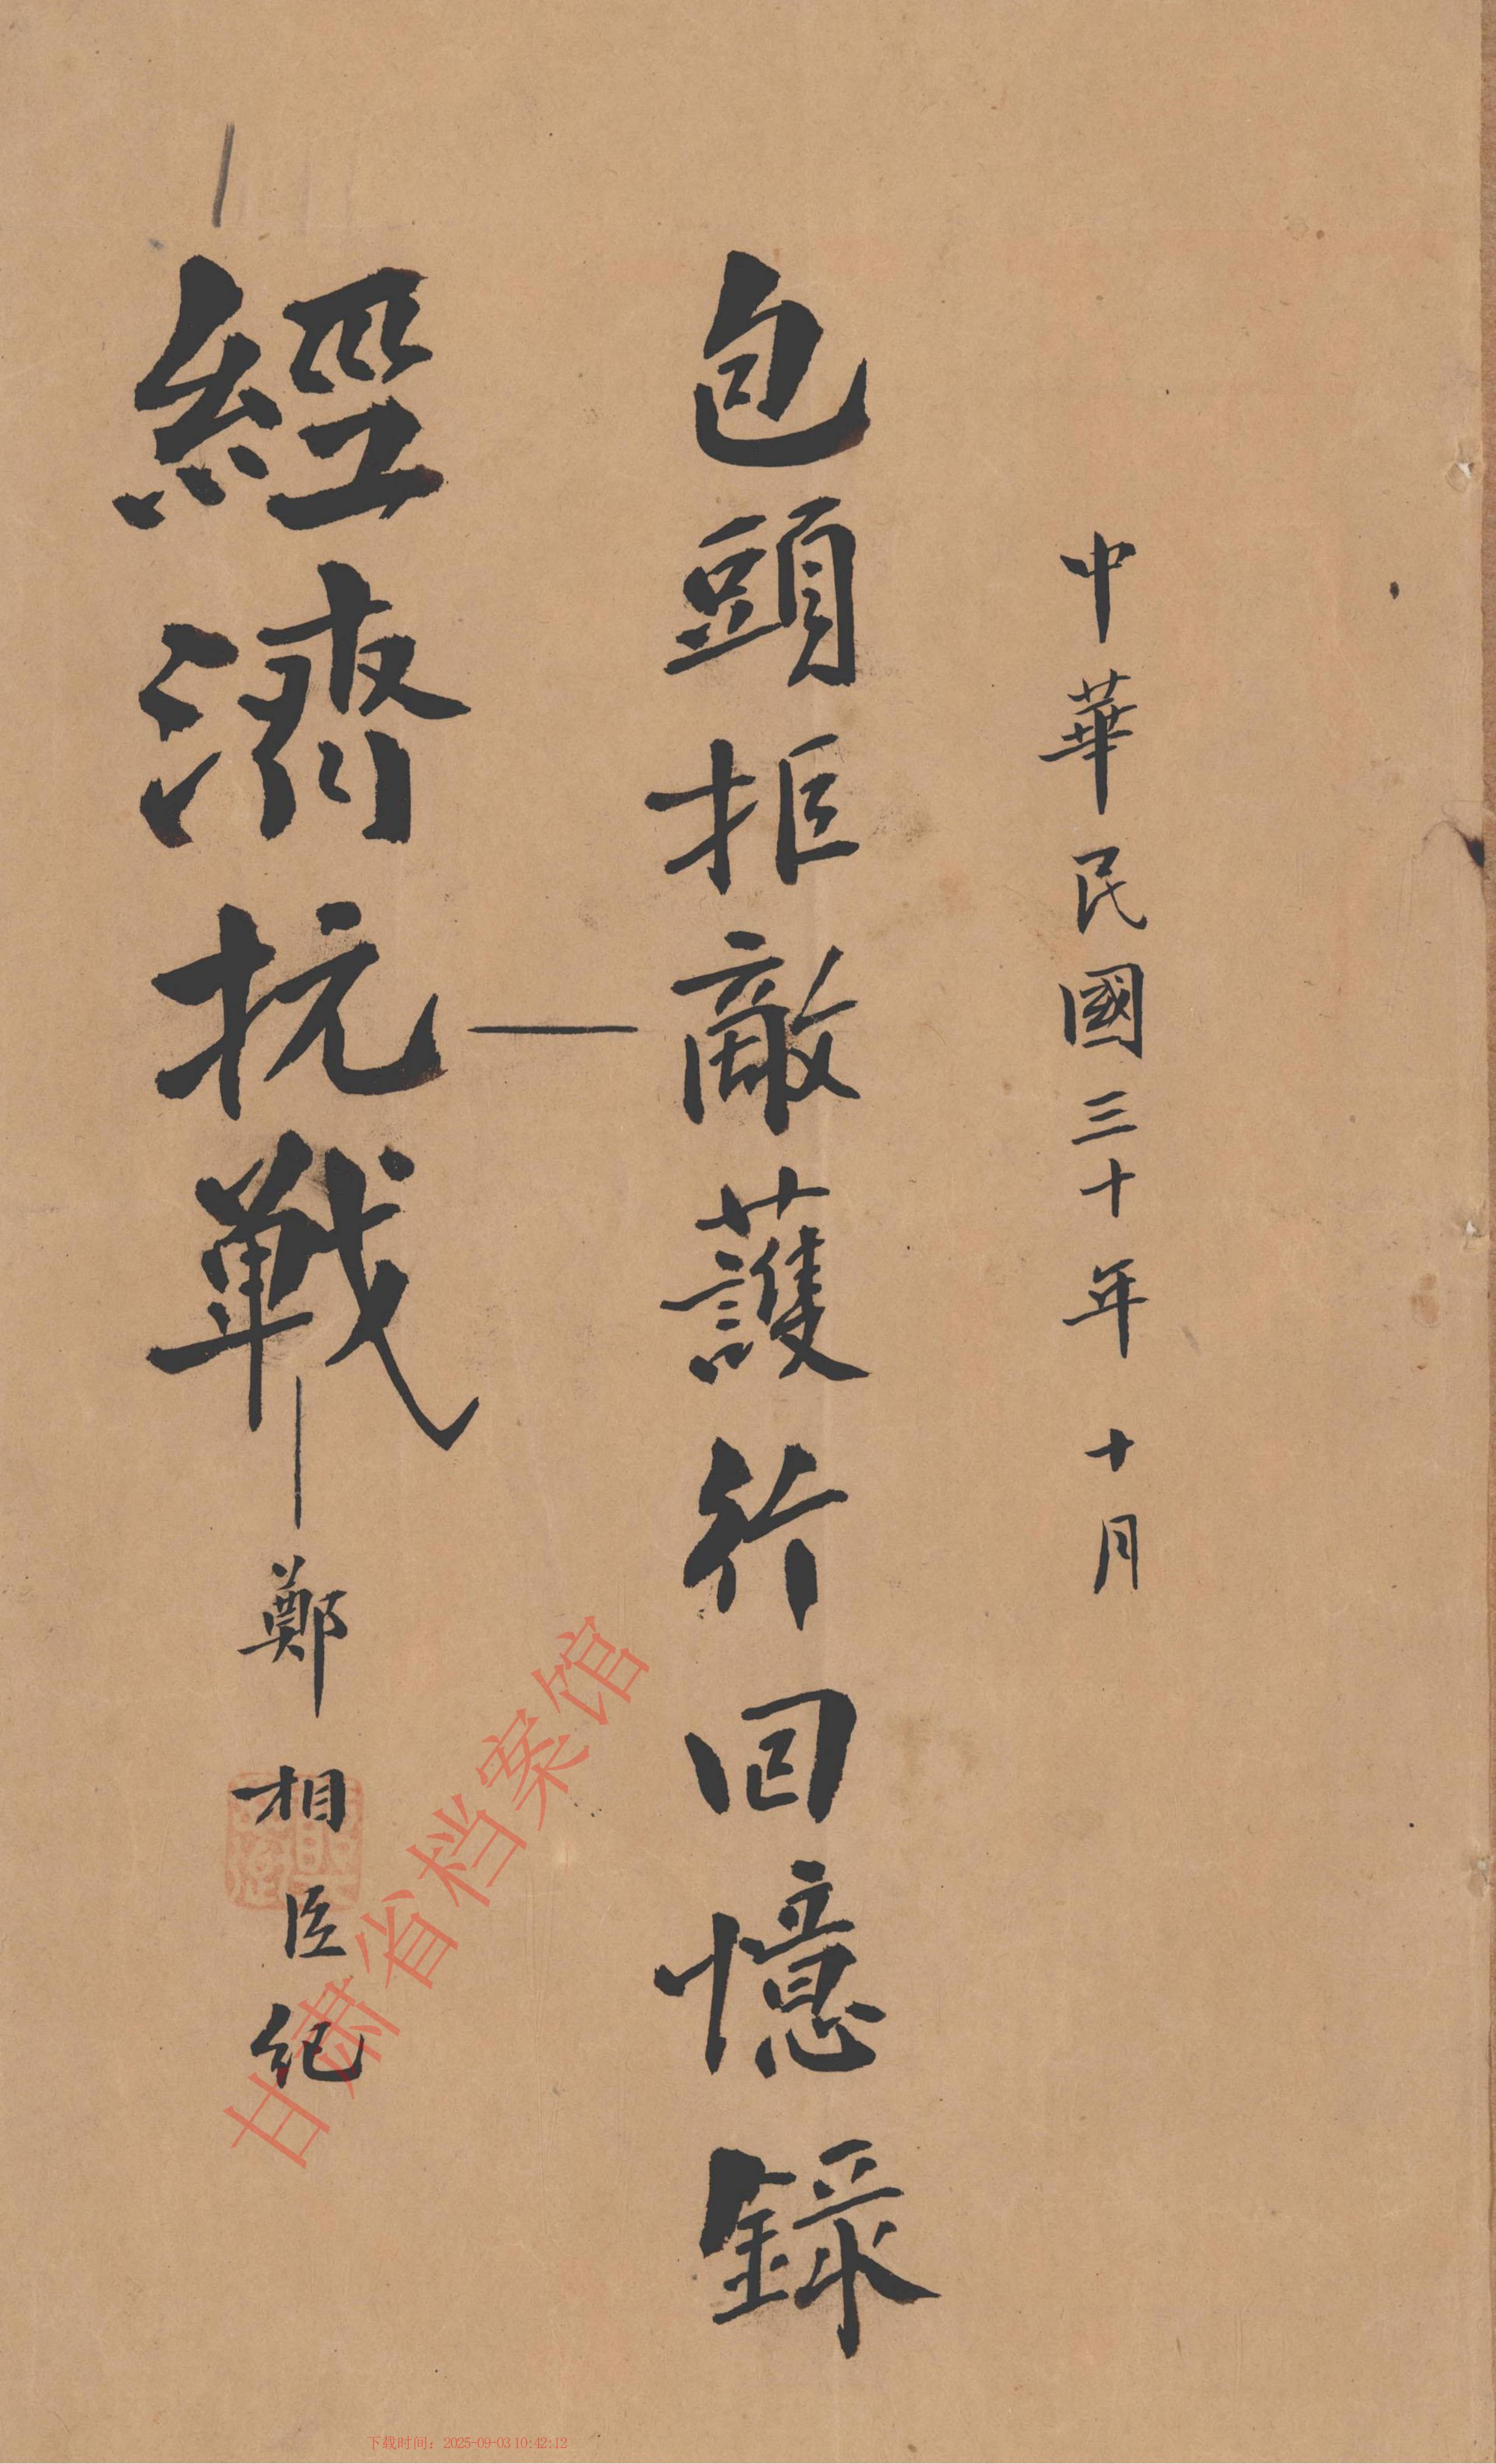 中華民國三十年十月
包頭拒敵護行回憶錄
經濟抗戰——鄭相臣紀
甘肃省档案馆
下载时间：2025-09-03 10:42:12